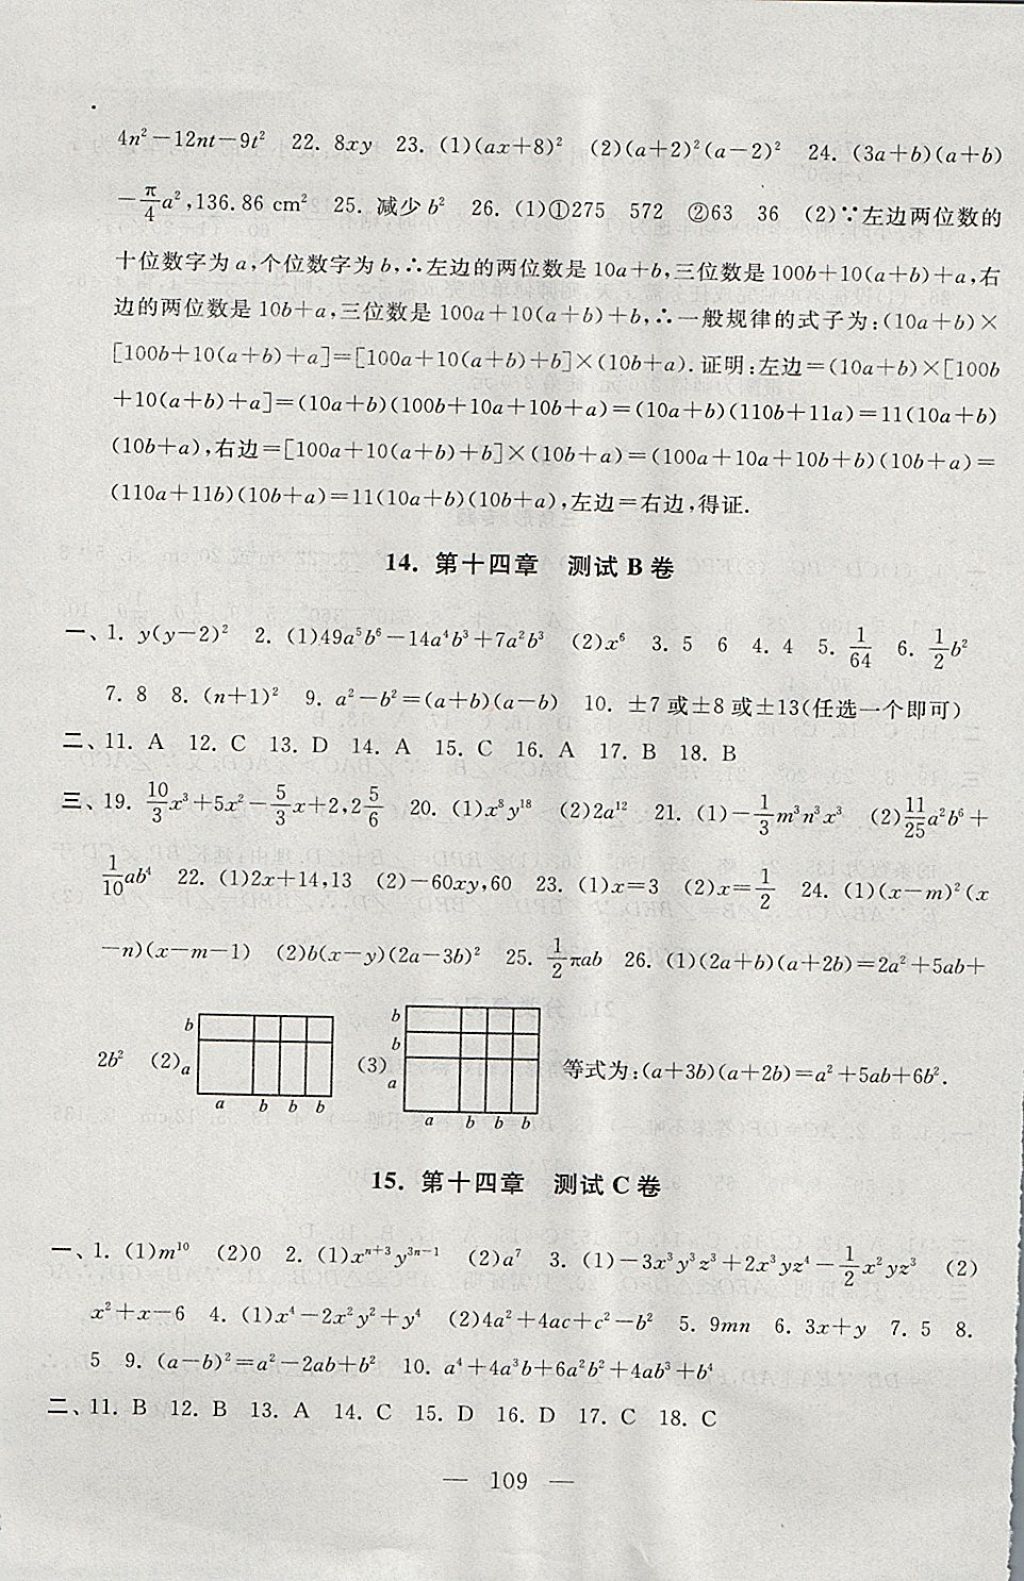 4n²－12nt－9t²　22. 8xy　23. (1)(ax＋8)²　(2)(a＋2)²(a－2)²　24. (3a＋b)(a＋b)
－π/4 a²,136.86 cm²　25. 减少 b²　26. (1)①275　572　②63　36　(2)∵左边两位数的
十位数字为 a,个位数字为 b,∴左边的两位数是 10a＋b,三位数是 100b＋10(a＋b)＋a,右
边的两位数是 10b＋a,三位数是 100a＋10(a＋b)＋b,∴一般规律的式子为:(10a＋b)×
[100b＋10(a＋b)＋a]＝[100a＋10(a＋b)＋b]×(10b＋a).证明:左边＝(10a＋b)×[100b
＋10(a＋b)＋a]＝(10a＋b)(100b＋10a＋10b＋a)＝(10a＋b)(110b＋11a)＝11(10a＋b)
(10b＋a),右边＝[100a＋10(a＋b)＋b]×(10b＋a)＝(100a＋10a＋10b＋b)(10b＋a)＝
(110a＋11b)(10b＋a)＝11(10a＋b)(10b＋a),左边＝右边,得证.
14. 第十四章　测试 B 卷
一、1. y(y－2)²　2. (1)49a⁵b⁶－14a⁴b³＋7a²b³　(2)x⁶　3. 5　6　4. 4　5. 1/64　6. 1/2 b²
7. 8　8. (n＋1)²　9. a²－b²＝(a＋b)(a－b)　10. ±7 或±8 或±13(任选一个即可)
二、11. A　12. C　13. D　14. A　15. C　16. A　17. B　18. B
三、19. 10/3 x³＋5x²－5/3 x＋2,2 5/6　20. (1)x⁸y¹⁸　(2)2a¹²　21. (1)－1/3 m³n³x³　(2)11/25 a²b⁶＋
1/10 ab⁴　22. (1)2x＋14,13　(2)－60xy,60　23. (1)x＝3　(2)x＝1/2　24. (1)(x－m)²(x
－n)(x－m－1)　(2)b(x－y)(2a－3b)²　25. 1/2 πab　26. (1)(2a＋b)(a＋2b)＝2a²＋5ab＋
2b²　(2) b a a b b b　(3) b b a a b b b　等式为:(a＋3b)(a＋2b)＝a²＋5ab＋6b².
15. 第十四章　测试 C 卷
一、1. (1)m¹⁰　(2)0　2. (1)xⁿ⁺³y³ⁿ⁻¹　(2)a⁷　3. (1)－3x³y³z³＋2x³yz⁴－1/2 x²yz³　(2)
x²＋x－6　4. (1)x⁴－2x²y²＋y⁴　(2)4a²＋4ac＋c²－b²　5. 9mn　6. 3x＋y　7. 5　8.
5　9. (a－b)²＝a²－2ab＋b²　10. a⁴＋4a³b＋6a²b²＋4ab³＋b⁴
二、11. B　12. B　13. A　14. C　15. D　16. D　17. C　18. C
— 109 —